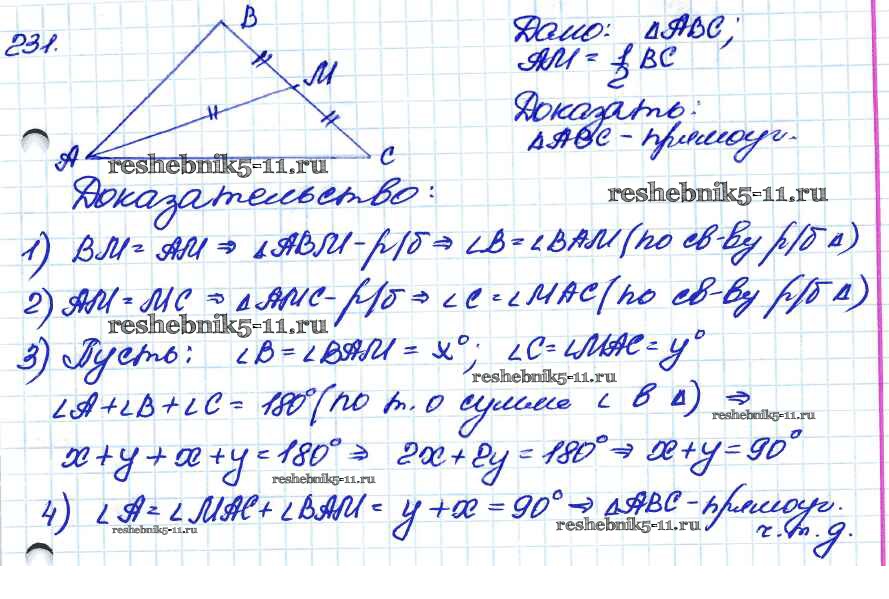 231.
B
M
A
C
Дано: △ABC;
AM = 1/2 BC
Доказать:
△ABC - прямоуг.
reshebnik5-11.ru
reshebnik5-11.ru
Доказательство:
1) BM = AM ⇒ △ABM - р/б ⇒ ∠B = ∠BAM (по св-ву р/б △)
2) AM = MC ⇒ △AMC - р/б ⇒ ∠C = ∠MAC (по св-ву р/б △)
reshebnik5-11.ru
3) Пусть: ∠B = ∠BAM = x°; ∠C = ∠MAC = y°
reshebnik5-11.ru
∠A + ∠B + ∠C = 180° (по т. о сумме ∠ в △) ⇒
reshebnik5-11.ru
x + y + x + y = 180° ⇒ 2x + 2y = 180° ⇒ x + y = 90°
reshebnik5-11.ru
4) ∠A = ∠MAC + ∠BAM = y + x = 90° ⇒ △ABC - прямоуг.
reshebnik5-11.ru
reshebnik5-11.ru
ч.т.д.